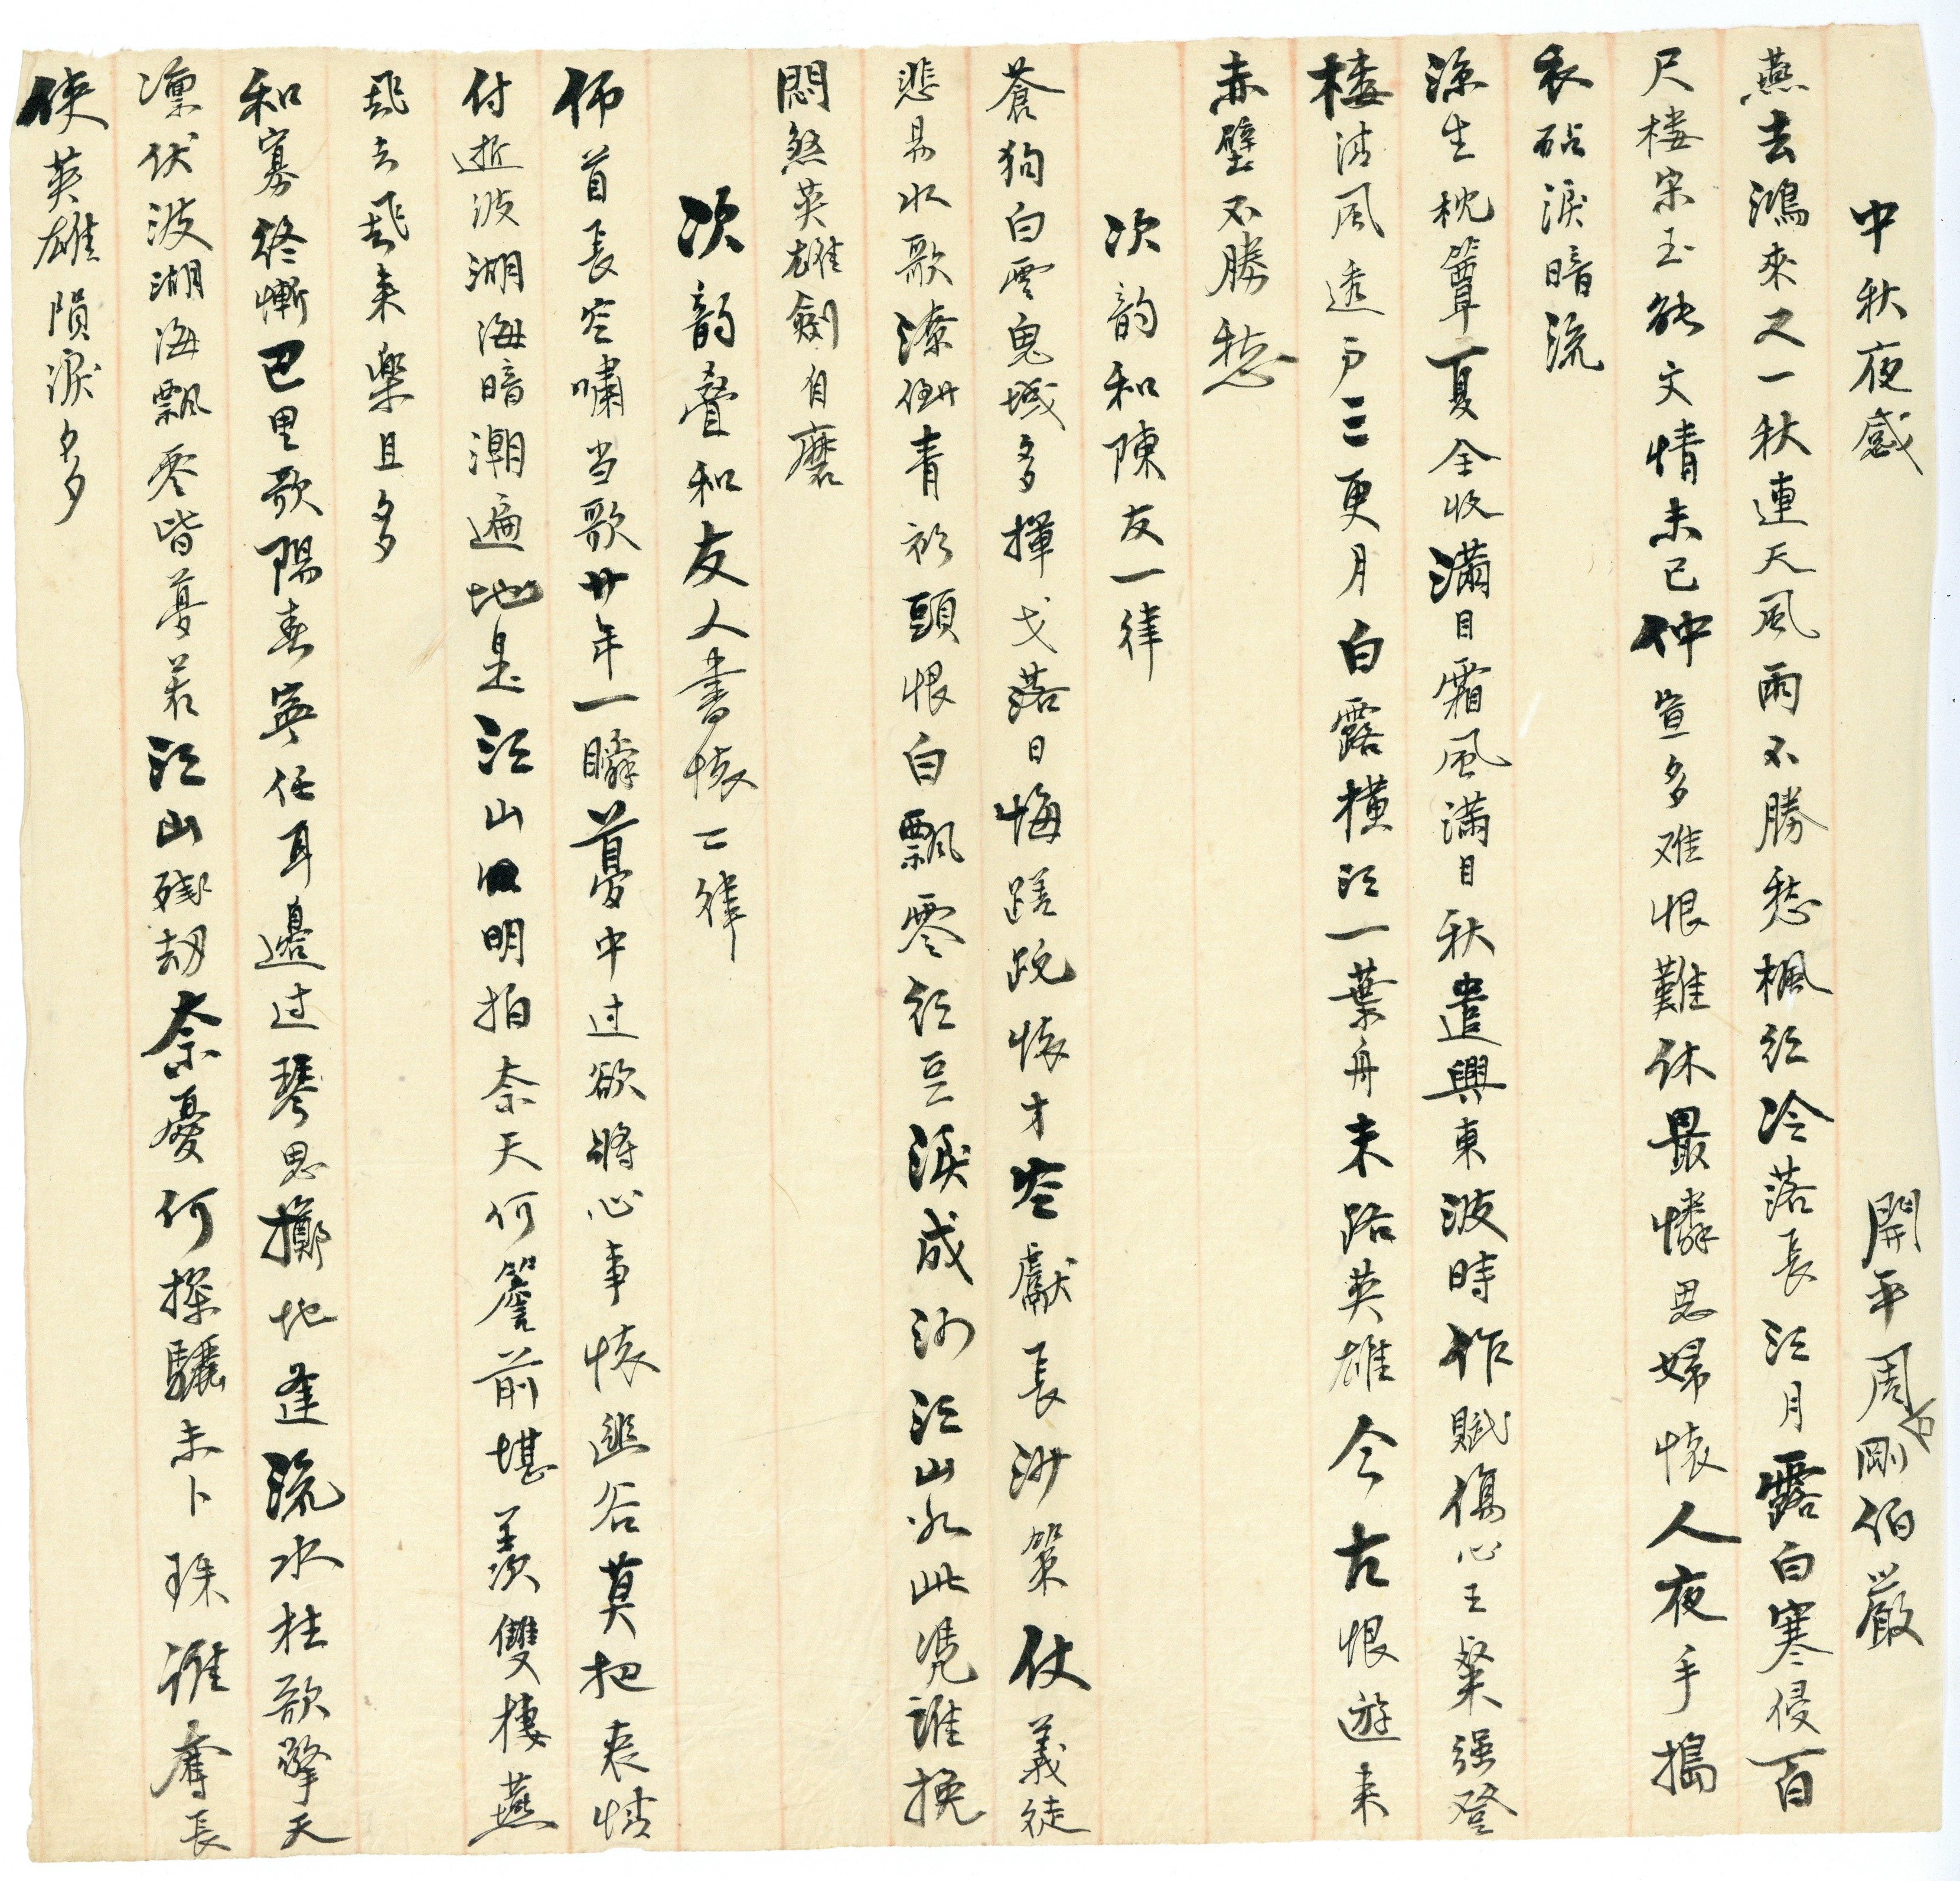 中秋夜感
開平周剛伯嚴
燕去鴻來又一秋連天風雨不勝愁楓红冷落長江月露白寒侵百
尺楼宋玉能文情未已仲宣多难恨難休最憐思婦懷人夜手搗
衣砧淚暗流
涼生枕簟夏全收滿目霜風滿目秋遣興東波時作賦傷心王粲强登
楼清風透户三更月白露橫江一葉舟末路英雄今古恨遊来
赤壁不勝愁
次韵和陳友一律
蒼狗白雲鬼域多揮戈落日悔蹉跎懷才空獻長沙策仗義徒
悲易水歌潦倒青衫頭恨白飄零红豆淚成河江山如此凴誰挽
悶煞英雄劍自磨
次韵叠和友人書懷二律
俯首長空嘯当歌廿年一瞬夢中过欲將心事懷幽谷莫把衷情
付逝波湖海暗潮遍地是江山明拍奈天何簷前堪羡雙棲燕
飛去飛来樂且多
和寡终慚巴里歌陽春寞任耳邊过琴思擲地逢流水柱欲擎天
凜伏波湖海飄零皆夢若江山残劫奈憂何探驪未卜珠誰奪長
使英雄隕淚多